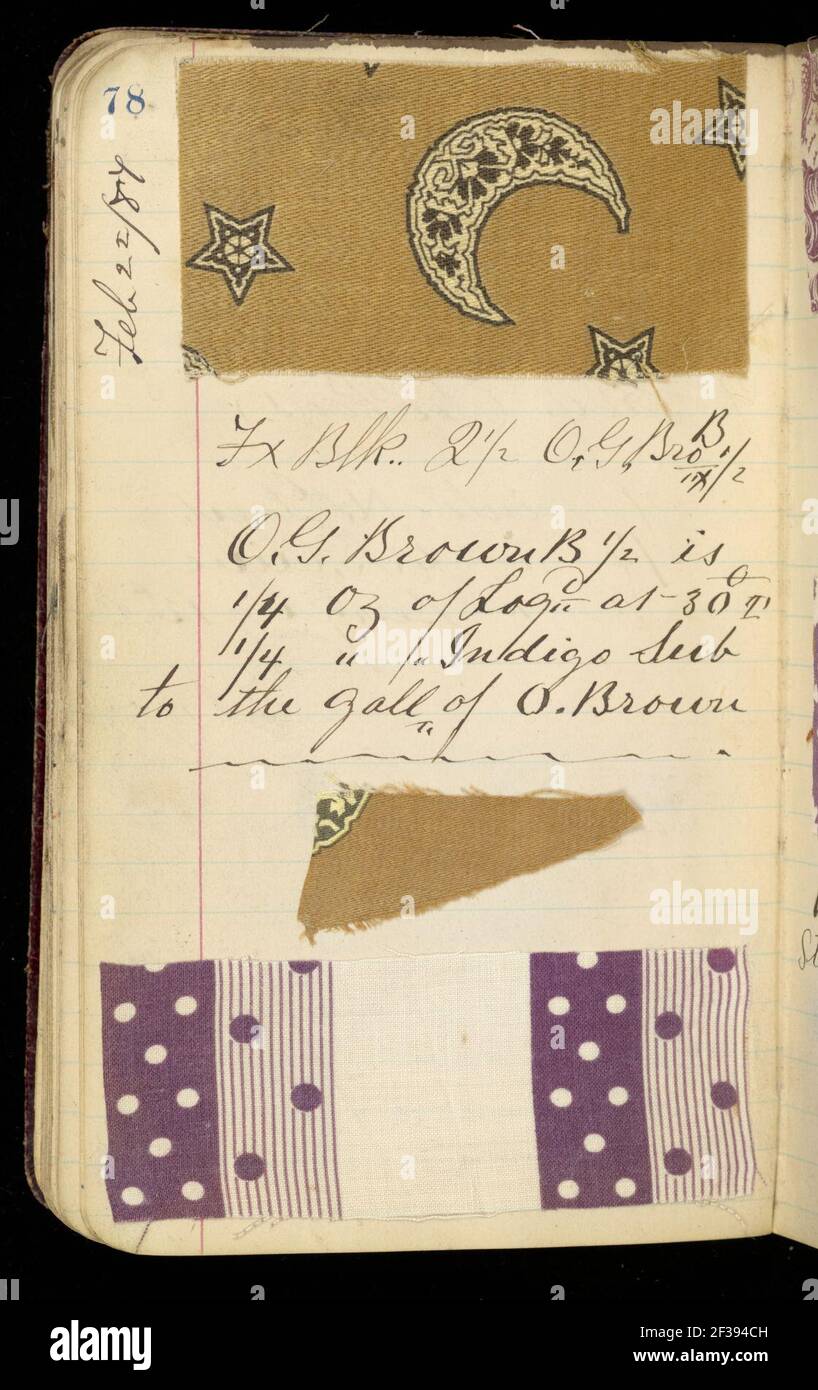 78
Feb 22/84
Fx Blk. 2 1/2 O.G. Bro B 1/2
O.G. Brown B 1/2 is
1/4 Oz of Log at 30
1/4 " " Indigo Sub
to the gall of O. Brown
alamy
alamy
alamy
alamy
Image ID: 2F394CH
www.alamy.com